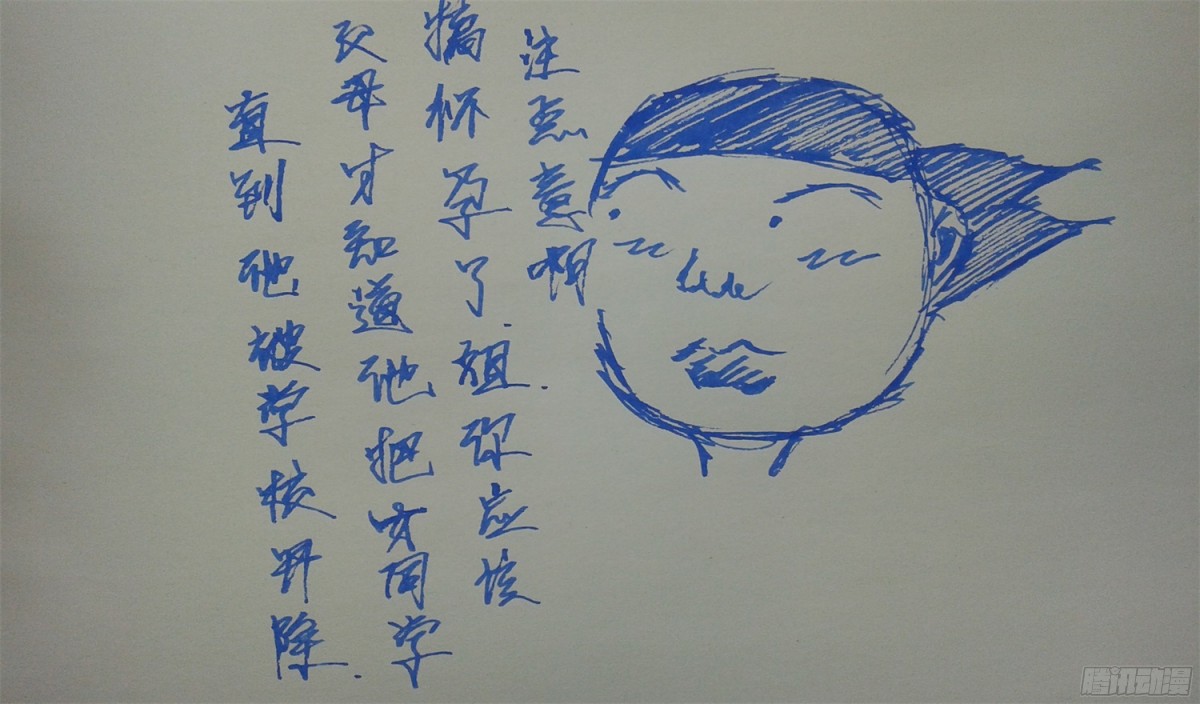 直到他被学校开除.
父母才知道他把女同学
搞怀孕了.姐.你应该
注点意啊
腾讯动漫